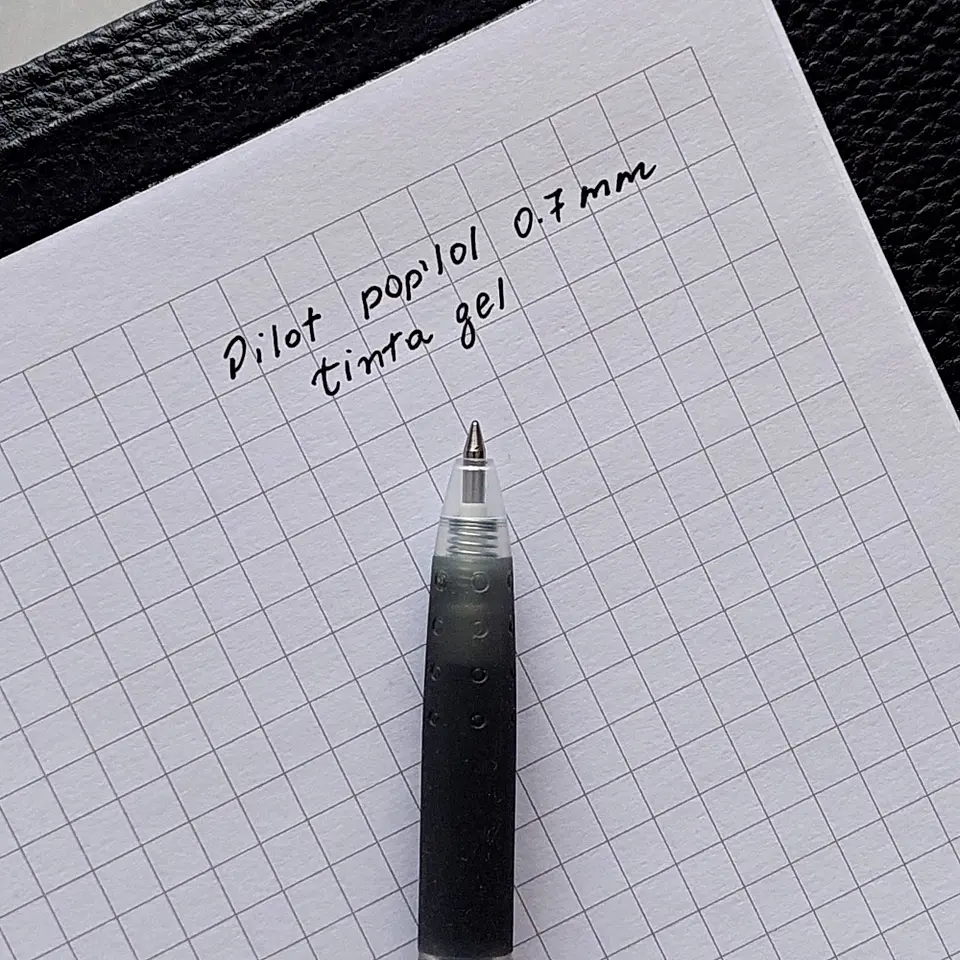 Pilot pop'lol 0.7 mm
tinta gel